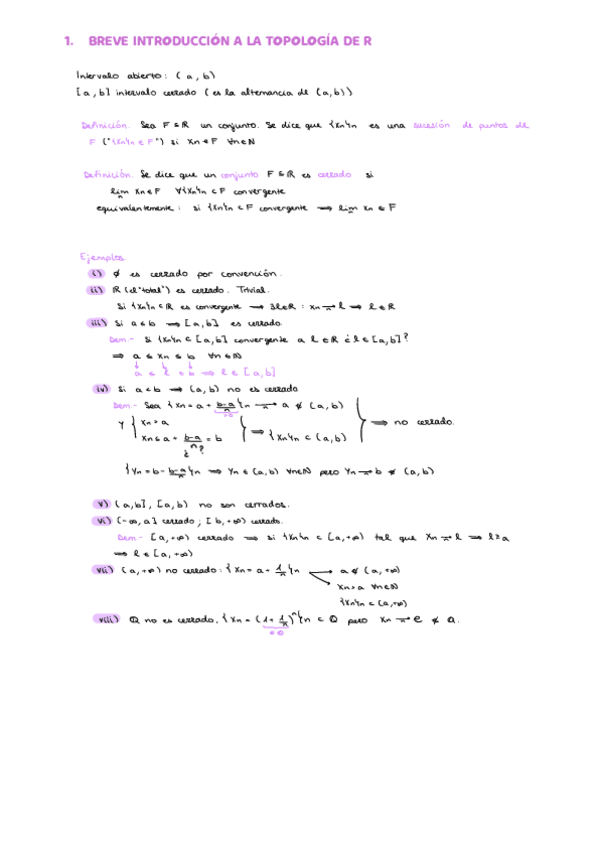 1. BREVE INTRODUCCIÓN A LA TOPOLOGÍA DE R
Intervalo abierto: (a, b)
[a, b] intervalo cerrado (es la alternancia de (a, b))
Definición. Sea F ⊆ ℝ un conjunto. Se dice que {xn}n es una sucesión de puntos de
F ("{xn}n ∈ F") si xn ∈ F ∀n∈ℕ
Definición. Se dice que un conjunto F ⊆ ℝ es cerrado si
lim xn ∈ F ∀{xn}n ⊂ F convergente
n
equivalentemente: si {xn}n ⊂ F convergente ⟹ lim xn ∈ F
n
Ejemplos
i) ∅ es cerrado por convención.
ii) ℝ (el "total") es cerrado. Trivial.
Si {xn}n ⊂ ℝ es convergente ⟹ ∃l∈ℝ : xn → l ⟹ l ∈ ℝ
iii) Si a ≤ b ⟹ [a, b] es cerrado.
Dem.- Si {xn}n ⊂ [a, b] convergente a l ∈ ℝ ¿l ∈ [a, b]?
⟹ a ≤ xn ≤ b ∀n∈ℕ
↓ ↓ ↓
a ≤ l ≤ b ⟹ l ∈ [a, b]
iv) Si a < b ⟹ (a, b) no es cerrado
Dem.- Sea {xn = a + b-a/n}n → a ∉ (a, b)
y { xn > a
xn ≤ a + b-a/n = b } ⟹ {xn}n ⊂ (a, b) } ⟹ no cerrado.
¿?
{yn = b - b-a/n}n ⟹ yn ∈ (a, b) ∀n∈ℕ pero yn → b ∉ (a, b)
v) (a, b], [a, b) no son cerrados.
vi) (-∞, a] cerrado ; [b, +∞) cerrado.
Dem.- [a, +∞) cerrado ⟹ si {xn}n ⊂ [a, +∞) tal que xn → l ⟹ l ≥ a
⟹ l ∈ [a, +∞)
vii) (a, +∞) no cerrado : {xn = a + 1/n}n → a ∉ (a, +∞)
xn > a ∀n∈ℕ
{xn}n ⊂ (a, +∞)
viii) ℚ no es cerrado. {xn = (1 + 1/n)^n}n ⊂ ℚ pero xn → e ∉ ℚ.